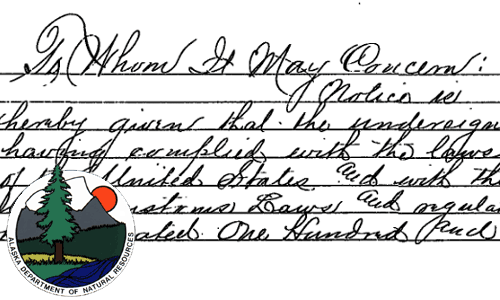 To Whom It May Concern:
Notice is
hereby given that the undersign
having complied with the laws
of United States and with the
Laws and regula
ated One Hundred and
ALASKA DEPARTMENT OF NATURAL RESOURCES